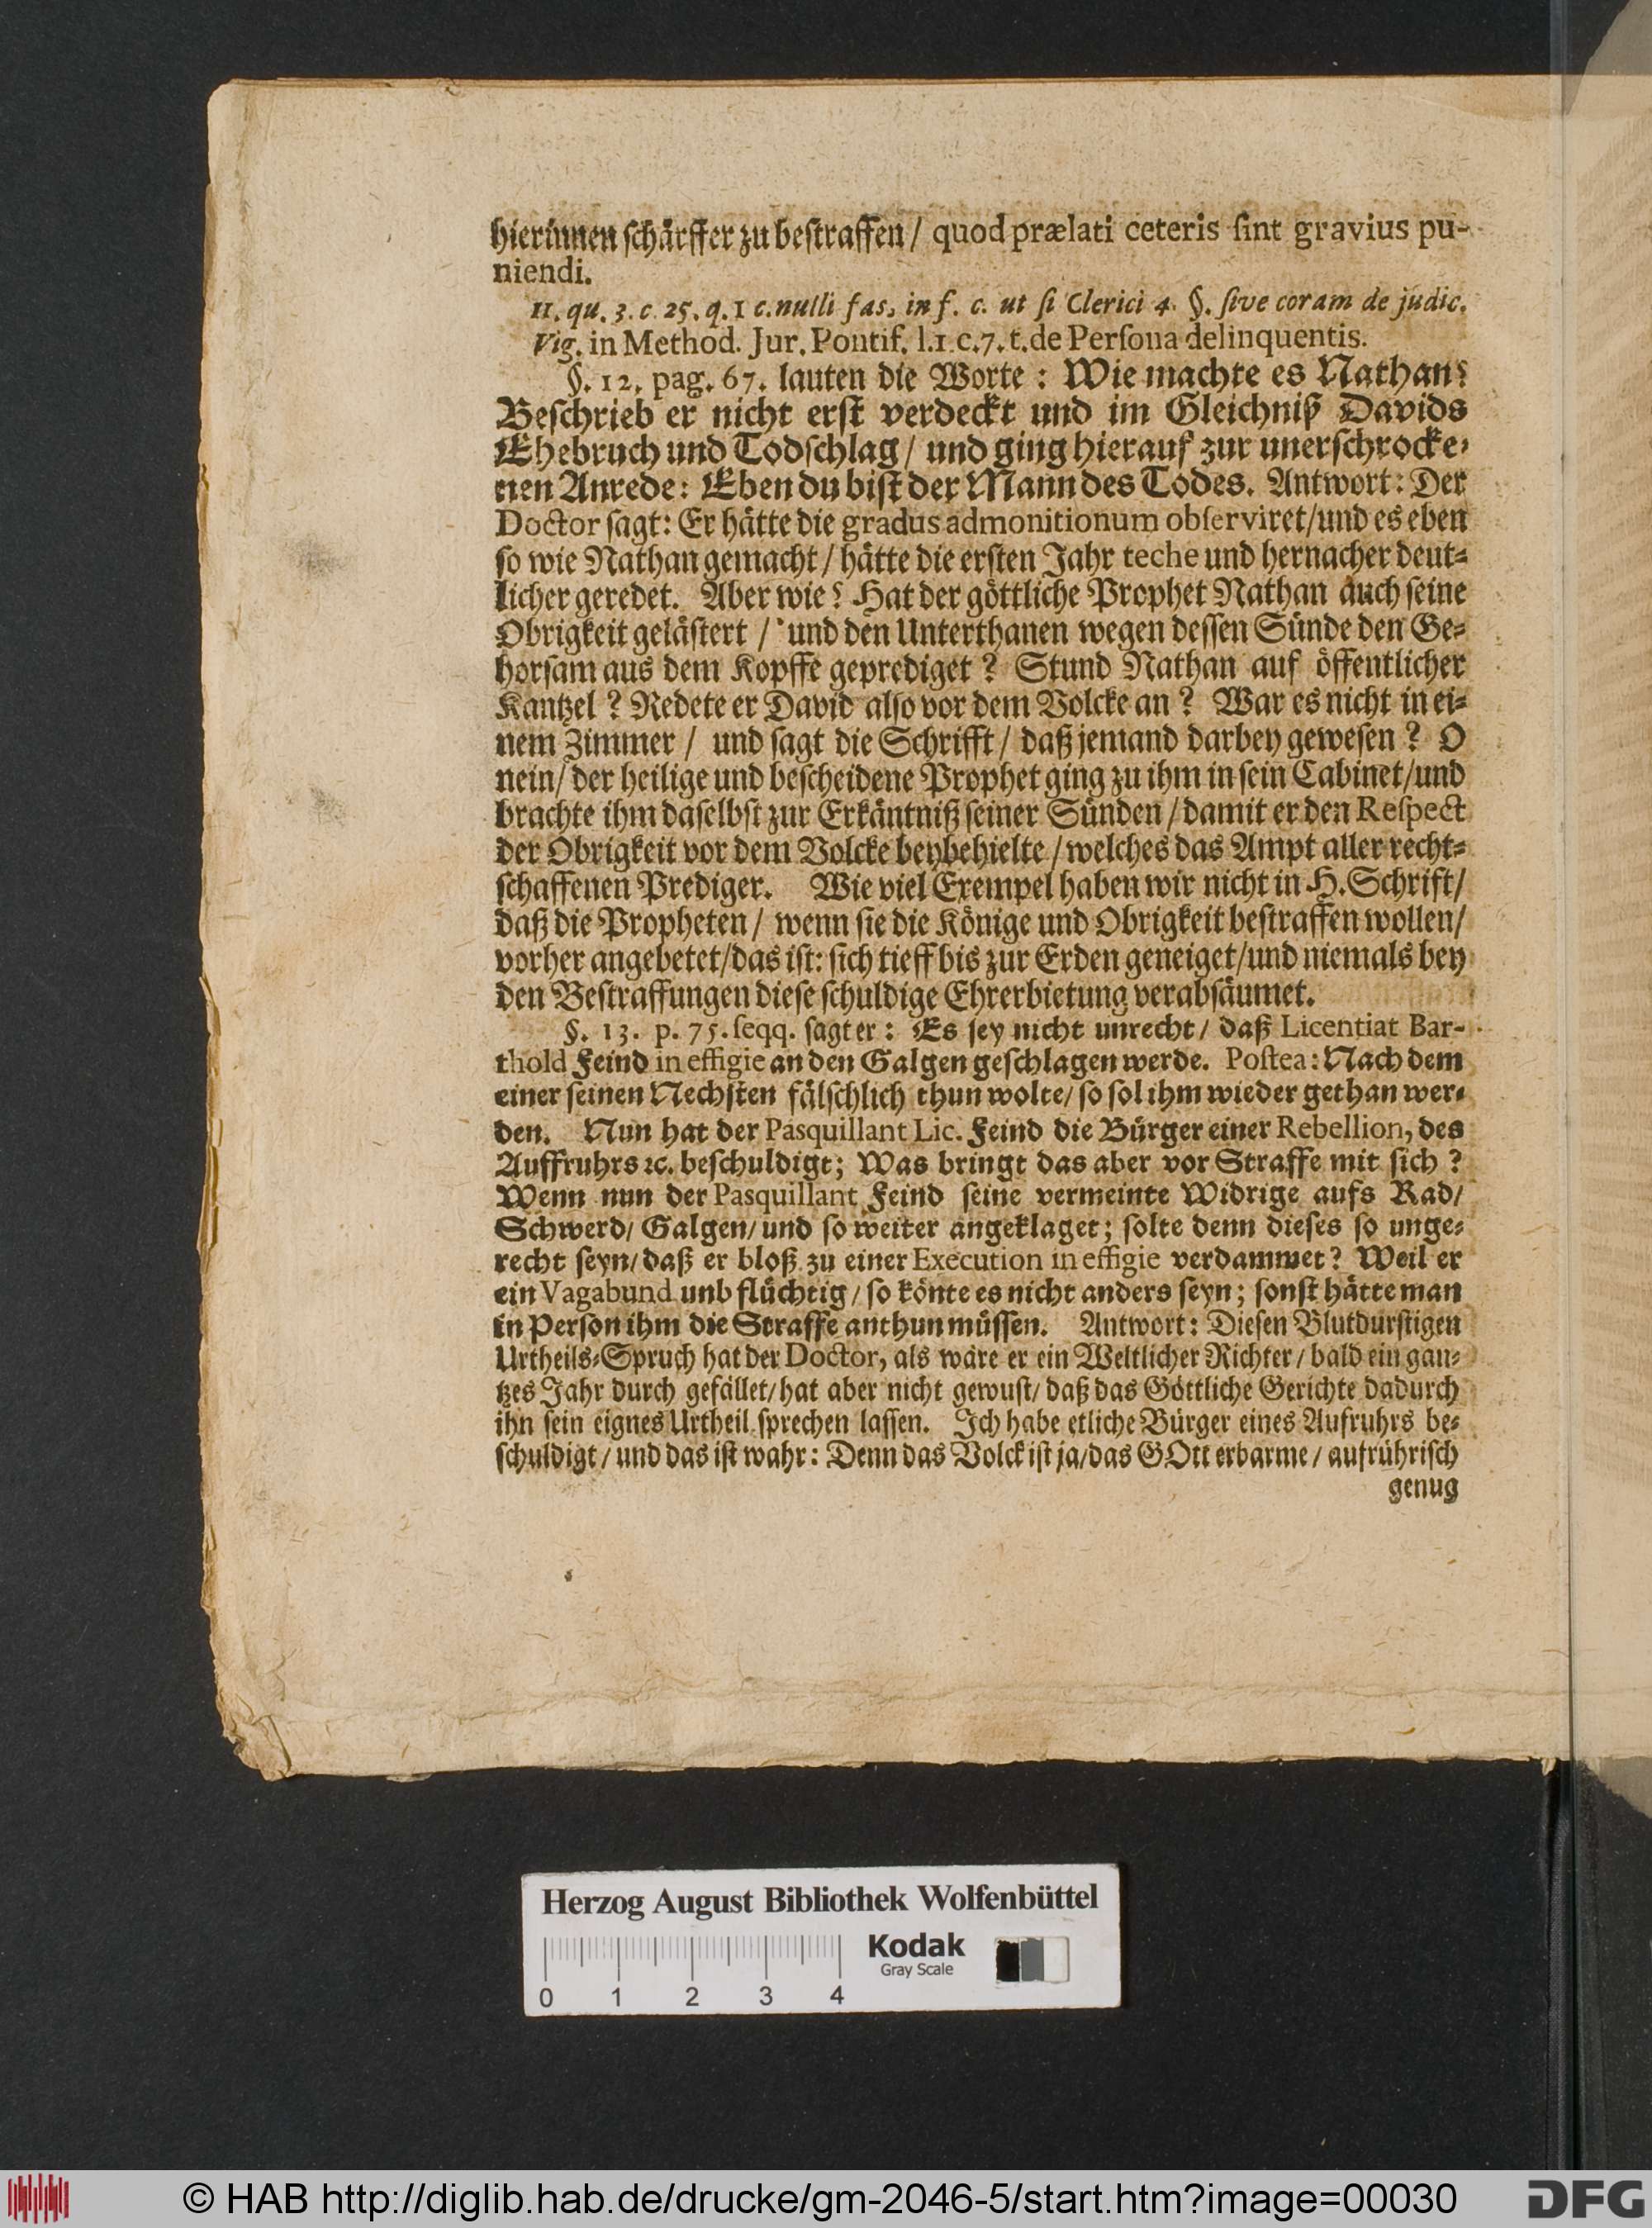 hierinnen ſchärffer zu beſtraffen / quod prælati ceteris ſint gravius pu-
niendi.
11. qu. 3. c. 25. q. 1 c. nulli fas, in f. c. ut ſi Clerici 4. §. ſive coram de judic.
Vig. in Method. Jur. Pontif. l. 1. c. 7. t. de Perſona delinquentis.
§. 12. pag. 67. lauten die Worte : Wie machte es Nathan?
Beſchrieb er nicht erſt verdeckt und im Gleichniß Davids
Ehebruch und Todſchlag / und ging hierauf zur unerſchrocke-
nen Anrede: Eben du biſt der Mann des Todes. Antwort: Der
Doctor ſagt: Er hätte die gradus admonitionum obſerviret/und es eben
ſo wie Nathan gemacht / hätte die erſten Jahr teche und hernacher deut-
licher geredet. Aber wie? Hat der göttliche Prophet Nathan auch ſeine
Obrigkeit geläſtert / und den Unterthanen wegen deſſen Sünde den Ge-
horſam aus dem Kopffe geprediget ? Stund Nathan auf öffentlicher
Kantzel ? Redete er David alſo vor dem Volcke an ? War es nicht in ei-
nem Zimmer / und ſagt die Schrifft / daß jemand darbey geweſen ? O
nein/ der heilige und beſcheidene Prophet ging zu ihm in ſein Cabinet/und
brachte ihm daſelbſt zur Erkäntniß ſeiner Sünden / damit er den Reſpect
der Obrigkeit vor dem Volcke beybehielte / welches das Ampt aller recht-
ſchaffenen Prediger. Wie viel Exempel haben wir nicht in H. Schrift/
daß die Propheten / wenn ſie die Könige und Obrigkeit beſtraffen wollen/
vorher angebetet/das iſt: ſich tieff bis zur Erden geneiget/und niemals bey
den Beſtraffungen dieſe ſchuldige Ehrerbietung verabſäumet.
§. 13. p. 75. ſeqq. ſagt er : Es ſey nicht unrecht / daß Licentiat Bar-
thold Feind in effigie an den Galgen geſchlagen werde. Poſtea: Nach dem
einer ſeinen Nechſten fälſchlich thun wolte/ ſo ſol ihm wieder gethan wer-
den. Nun hat der Pasquillant Lic. Feind die Bürger einer Rebellion, des
Auffruhrs ꝛc. beſchuldigt; Was bringt das aber vor Straffe mit ſich ?
Wenn nun der Pasquillant Feind ſeine vermeinte Widrige aufs Rad/
Schwerd/ Galgen/ und ſo weiter angeklaget; ſolte denn dieſes ſo unge-
recht ſeyn/ daß er bloß zu einer Execution in effigie verdammet? Weil er
ein Vagabund unb flüchtig / ſo könte es nicht anders ſeyn; ſonſt hätte man
in Perſon ihm die Straffe anthun müſſen. Antwort: Dieſen Blutdurſtigen
Urtheils-Spruch hat der Doctor, als wäre er ein Weltlicher Richter / bald ein gan-
tzes Jahr durch gefället/ hat aber nicht gewuſt/ daß das Göttliche Gerichte dadurch
ihn ſein eignes Urtheil ſprechen laſſen. Ich habe etliche Bürger eines Aufruhrs be-
ſchuldigt / und das iſt wahr: Denn das Volck iſt ja/das GOtt erbarme / aufrühriſch
genug
Herzog August Bibliothek Wolfenbüttel
Kodak
Gray Scale
0 1 2 3 4
© HAB http://diglib.hab.de/drucke/gm-2046-5/start.htm?image=00030
DFG